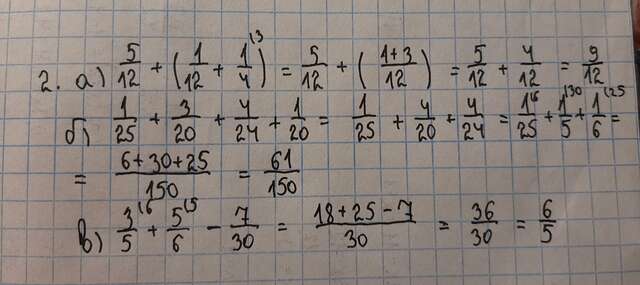 2. а) 5/12 + (1/12 + 1/4^(3) = 5/12 + (1+3/12) = 5/12 + 4/12 = 9/12
б) 1/25 + 3/20 + 4/24 + 1/20 = 1/25 + 4/20 + 4/24 = 1^(6/25 + 1^(30/5 + 1^(25/6 =
= 6+30+25/150 = 61/150
в) 3^(6/5 + 5^(5/6 - 7/30 = 18+25-7/30 = 36/30 = 6/5